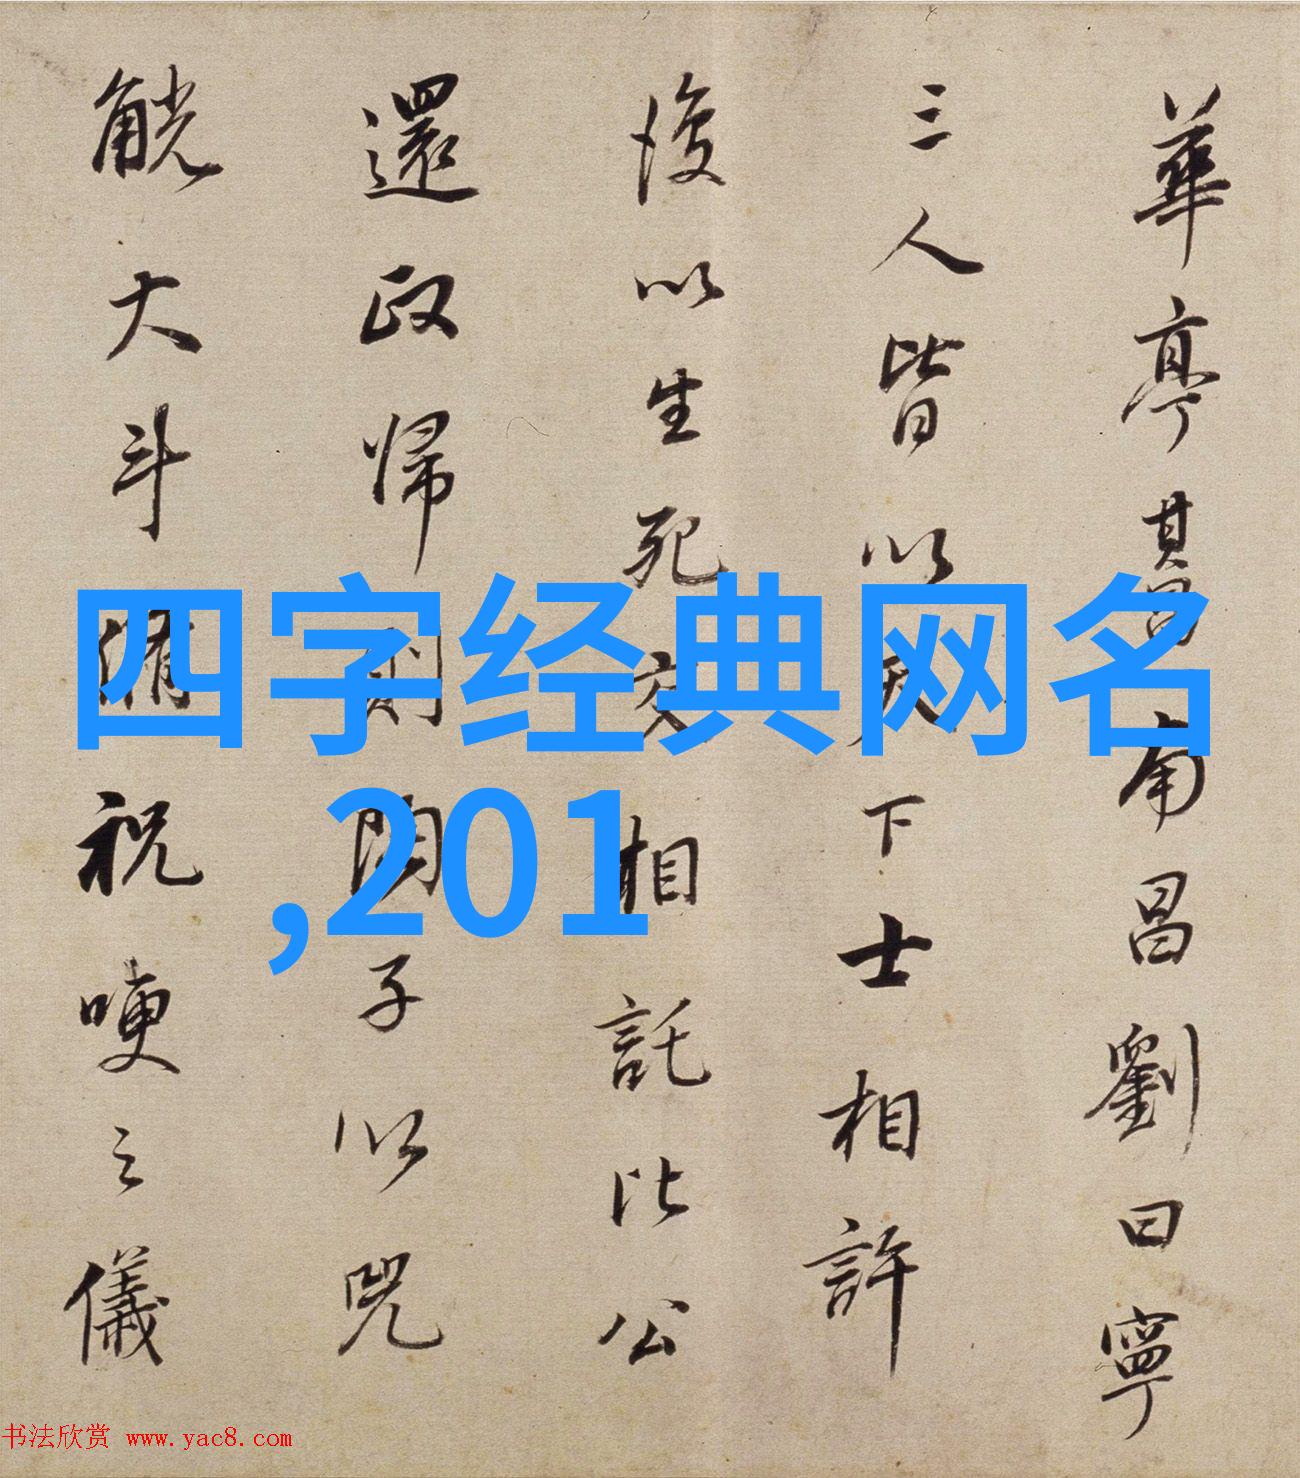 華亭其昌南昌劉曰寧
三人皆以天下士相許
後以生死交相託比公
還政歸則門子以兕
觥大斗脩祝哽之儀
四字经典网名
,201
书法欣赏 www.yac8.com